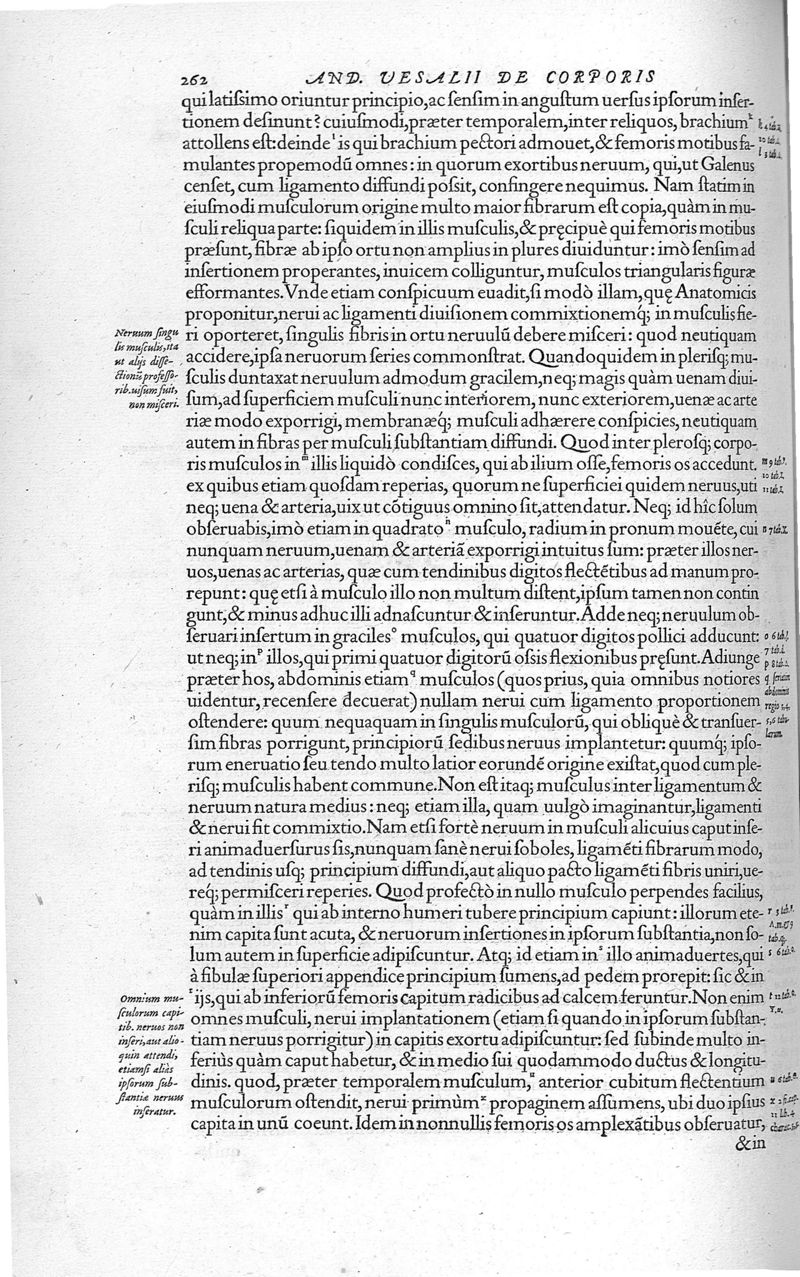 262 AND. VESALII DE CORPORIS
qui latiſsimo oriuntur principio, ac ſenſim in anguſtum uerſus ipſorum inſer-
tionem deſinunt? cuiuſmodi, præter temporalem, inter reliquos, brachium k
attollens eſt: deinde l is qui brachium pectori admouet, & femoris motibus fa-
mulantes propemodū omnes: in quorum exortibus neruum, qui, ut Galenus
cenſet, cum ligamento diffundi poſsit, confingere nequimus. Nam ſtatim in
eiuſmodi muſculorum origine multo maior fibrarum eſt copia, quàm in mu-
ſculi reliqua parte: ſiquidem in illis muſculis, & pręcipuè qui femoris motibus
præſunt, fibræ ab ipſo ortu non amplius in plures diuiduntur: imò ſenſim ad
inſertionem properantes, inuicem colliguntur, muſculos triangularis figuræ
efformantes. Vnde etiam conſpicuum euadit, ſi modò illam, quę Anatomicis
proponitur, nerui ac ligamenti diuiſionem commixtionemq́; in muſculis fie-
Neruum ſingu
lis muſculis, ita
ut alijs diſſe-
ctionis profeſſo-
rib. uiſum fuit,
non miſceri.
ri oporteret, ſingulis fibris in ortu neruulū debere miſceri: quod neutiquam
accidere, ipſa neruorum ſeries commonſtrat. Quandoquidem in pleriſq; mu-
ſculis duntaxat neruulum admodum gracilem, neq; magis quàm uenam diui-
ſum, ad ſuperficiem muſculi nunc interiorem, nunc exteriorem, uenæ ac arte
riæ modo exporrigi, membranæq́; muſculi adhærere conſpicies, neutiquam
autem in fibras per muſculi ſubſtantiam diffundi. Quod inter pleroſq; corpo-
ris muſculos in m illis liquidò condiſces, qui ab ilium oſſe, femoris os accedunt.
ex quibus etiam quoſdam reperias, quorum ne ſuperficiei quidem neruus, uti
neq; uena & arteria, uix ut cōtiguus omnino ſit, attendatur. Neq; id hîc ſolum
obſeruabis, imò etiam in quadrato n muſculo, radium in pronum mouēte, cui
nunquam neruum, uenam & arteriā exporrigi intuitus ſum: præter illos ner-
uos, uenas ac arterias, quæ cum tendinibus digitos flectētibus ad manum pro-
repunt: quę etſi à muſculo illo non multum diſtent, ipſum tamen non contin
gunt, & minus adhuc illi adnaſcuntur & inſeruntur. Adde neq; neruulum ob-
ſeruari inſertum in graciles o muſculos, qui quatuor digitos pollici adducunt:
ut neq; in p illos, qui primi quatuor digitorū oſsis flexionibus pręſunt. Adiunge
præter hos, abdominis etiam q muſculos (quos prius, quia omnibus notiores
uidentur, recenſere decuerat) nullam nerui cum ligamento proportionem
oſtendere: quum nequaquam in ſingulis muſculorū, qui obliquè & tranſuer-
ſim fibras porrigunt, principiorū ſedibus neruus implantetur: quumq́; ipſo-
rum eneruatio ſeu tendo multo latior eorundē origine exiſtat, quod cum ple-
riſq; muſculis habent commune. Non eſt itaq; muſculus inter ligamentum &
neruum natura medius: neq; etiam illa, quam uulgò imaginantur, ligamenti
& nerui fit commixtio. Nam etſi fortè neruum in muſculi alicuius caput inſe-
ri animaduerſurus ſis, nunquam ſanè nerui ſoboles, ligamēti fibrarum modo,
ad tendinis uſq; principium diffundi, aut aliquo pacto ligamēti fibris uniri, ue-
req́; permiſceri reperies. Quod profectò in nullo muſculo perpendes facilius,
quàm in illis r qui ab interno humeri tubere principium capiunt: illorum ete-
nim capita ſunt acuta, & neruorum inſertiones in ipſorum ſubſtantia, non ſo-
lum autem in ſuperficie adipiſcuntur. Atq; id etiam in s illo animaduertes, qui
à fibulæ ſuperiori appendice principium ſumens, ad pedem prorepit: ſic & in
Omnium mu-
ſculorum capi-
tib. neruos non
inſeri, aut alio-
quin attendi,
etiamſi aliàs
ipſorum ſub-
ſtantiæ neruus
inſeratur.
t ijs, qui ab inferiorū femoris capitum radicibus ad calcem feruntur. Non enim
omnes muſculi, nerui implantationem (etiam ſi quando in ipſorum ſubſtan-
tiam neruus porrigitur) in capitis exortu adipiſcuntur: ſed ſubinde multo in-
feriùs quàm caput habetur, & in medio ſui quodammodo ductus & longitu-
dinis. quod, præter temporalem muſculum, u anterior cubitum flectentium
muſculorum oſtendit, nerui primùm x propaginem aſſumens, ubi duo ipſius
capita in unū coeunt. Idem in nonnullis femoris os amplexātibus obſeruatur,
& in